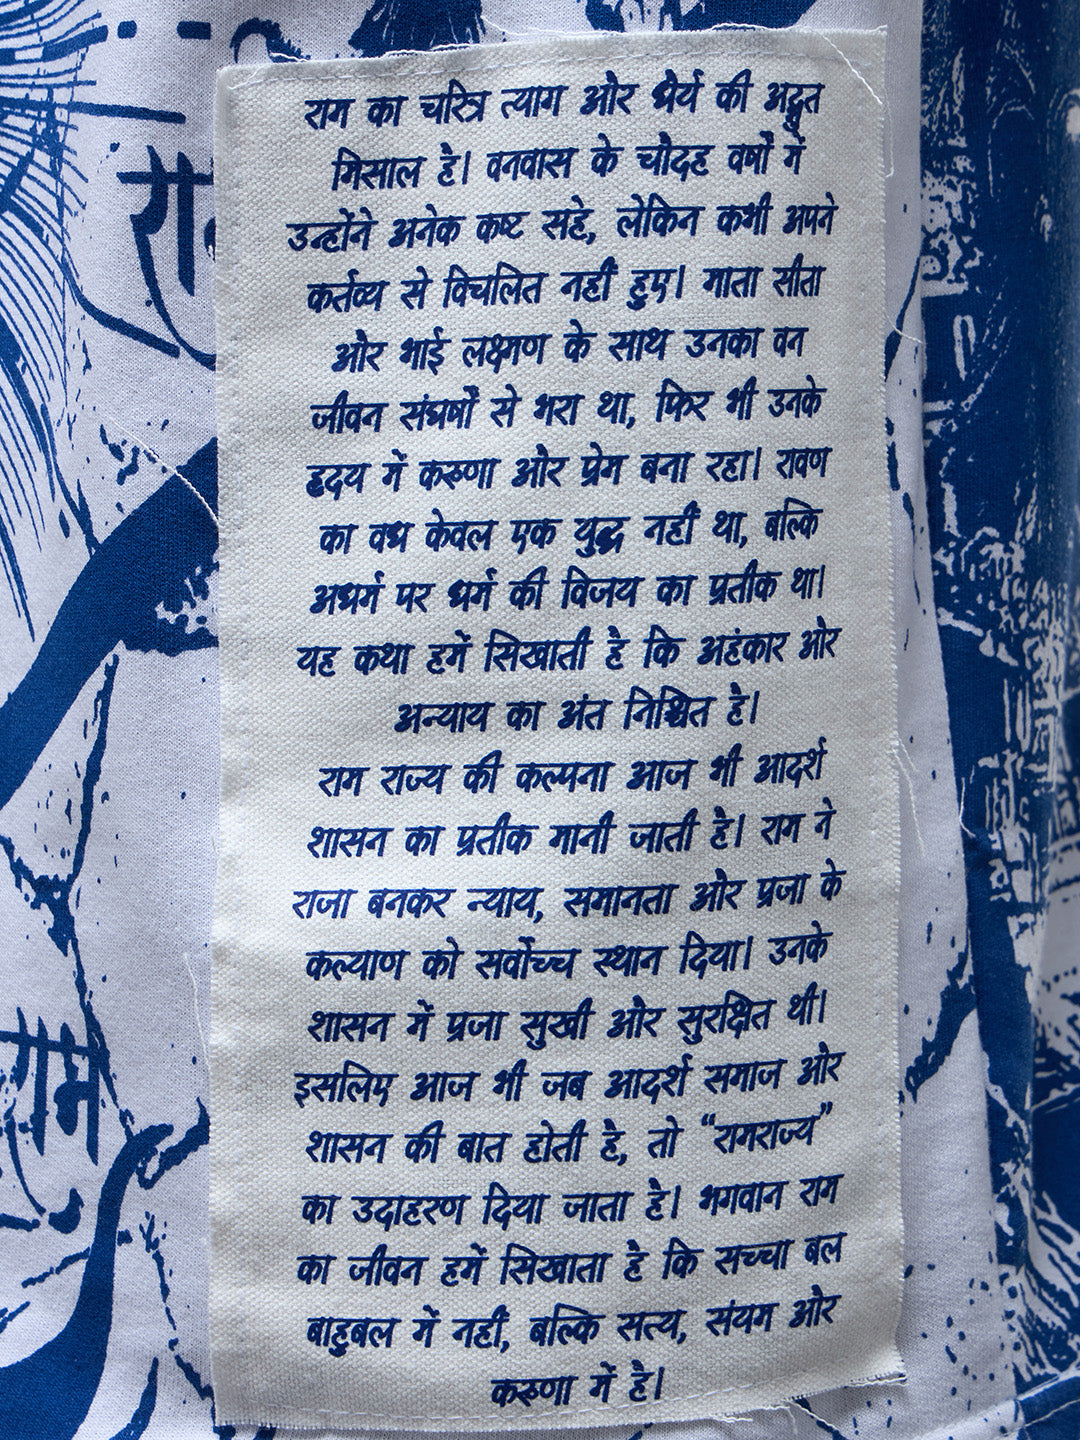 राम का चरित्र त्याग और धैर्य की अद्भुत
मिसाल है। वनवास के चौदह वर्षों में
उन्होंने अनेक कष्ट सहे, लेकिन कभी अपने
कर्तव्य से विचलित नहीं हुए। माता सीता
और भाई लक्ष्मण के साथ उनका वन
जीवन संघर्षों से भरा था, फिर भी उनके
हृदय में करुणा और प्रेम बना रहा। रावण
का वध केवल एक युद्ध नहीं था, बल्कि
अधर्म पर धर्म की विजय का प्रतीक था।
यह कथा हमें सिखाती है कि अहंकार और
अन्याय का अंत निश्चित है।
राम राज्य की कल्पना आज भी आदर्श
शासन का प्रतीक मानी जाती है। राम ने
राजा बनकर न्याय, समानता और प्रजा के
कल्याण को सर्वोच्च स्थान दिया। उनके
शासन में प्रजा सुखी और सुरक्षित थी।
इसलिए आज भी जब आदर्श समाज और
शासन की बात होती है, तो “रामराज्य”
का उदाहरण दिया जाता है। भगवान राम
का जीवन हमें सिखाता है कि सच्चा बल
बाहुबल में नहीं, बल्कि सत्य, संयम और
करुणा में है।
राम